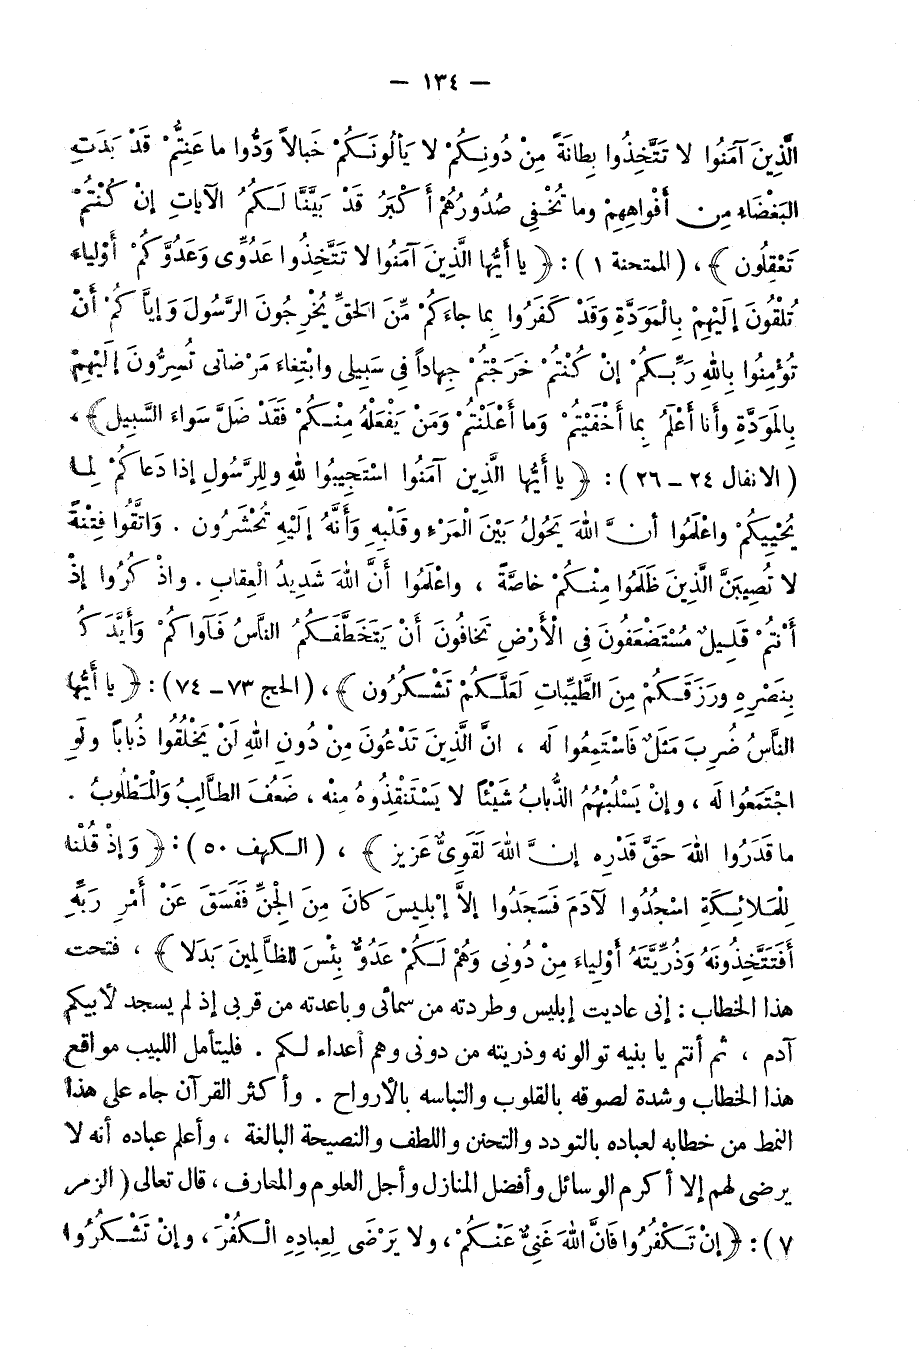 — ١٣٤ —
الَّذِينَ آمَنُوا لا تَتَّخِذُوا بِطانَةً مِنْ دُونِكُمْ لا يَأْلُونَكُمْ خَبالاً وَدُّوا ما عَنِتُّمْ قَدْ بَدَتِ
البَغْضَاءِ مِن أَفْواهِهِمْ وما تُخْفِي صُدُورُهُمْ أَكْبَرُ قَدْ بَيَّنَّا لَكُمُ الآيَاتِ إنْ كُنْتُمْ
تَعْقِلُون ﴾ ، ( الممتحنة ١ ) : ﴿ يا أَيُّها الَّذِينَ آمَنُوا لا تَتَّخِذُوا عَدُوِّى وَعَدُوَّكُمْ أَوْلياءَ
تُلْقُونَ إِلَيْهِمْ بِالْمَوَدَّةِ وَقَدْ كَفَرُوا بِما جاءَكُمْ مِّنَ الحَقِّ يُخْرِجُونَ الرَّسُولَ وَإيَّاكُمْ أَنْ
تُؤْمِنُوا بِاللهِ رَبِّكُمْ إنْ كُنْتُمْ خَرَجْتُمْ جِهاداً فِي سَبِيلِى وابْتِغاءَ مَرْضاتِى تُسِرُّونَ إلَيْهِمْ
بِالمَوَدَّةِ وأنا أعْلَمُ بِما أَخْفَيْتُمْ وَما أَعْلَنْتُمْ وَمَنْ يَفْعَلْهُ مِنْكُمْ فَقَدْ ضَلَّ سَواءَ السَّبِيل ﴾ ،
( الانفال ٢٤ – ٢٦ ) : ﴿ يا أَيُّها الَّذِين آمَنُوا اسْتَجِيبُوا للهِ وللرَّسُولِ إذا دَعاكُمْ لِما
يُحْيِيكُمْ واعْلَمُوا أنَّ اللهَ يَحُولُ بَيْنَ المَرْءِ وقَلْبِهِ وَأَنَّهُ إلَيْهِ تُحْشَرُون . وَاتَّقُوا فِتْنَةً
لا تُصِيبَنَّ الَّذِينَ ظَلَمُوا مِنْكُمْ خاصَّةً ، واعْلَمُوا أَنَّ اللهَ شَدِيدُ الْعِقابِ . واذْكُرُوا إذْ
أَنْتُمْ قَلِيلٌ مُسْتَضْعَفُونَ فِي الْأَرْضِ تَخافُونَ أَنْ يَتَخَطَّفَكُمُ النَّاسُ فَآواكُمْ وَأَيَّدَكُ
بِنَصْرِهِ ورَزَقَكُمْ مِنَ الطَّيِّباتِ لَعَلَّكُمْ تَشْكُرُون ﴾ ، ( الحج ٧٣ – ٧٤ ) : ﴿ يا أَيُّها
النَّاسُ ضُرِبَ مَثَلٌ فَاسْتَمِعُوا لَه ، انَّ الَّذِينَ تَدْعُونَ مِنْ دُونِ اللهِ لَنْ يَخْلُقُوا ذُباباً ولَوِ
اجْتَمَعُوا لَه ، وإنْ يَسْلُبْهُمُ الذُّبابُ شَيْئاً لا يَسْتَنْقِذُوهُ مِنْه ، ضَعُفَ الطَّالِبُ وَالْمَطْلُوبُ .
ما قَدَرُوا اللهَ حَقَّ قَدْرِه إنَّ اللهَ لَقَوِىٌّ عَزِيز ﴾ ، ( الكهف ٥٠ ) : ﴿ وَإذْ قُلْنا
لِلْمَلائِكَةِ اسْجُدُوا لآدَمَ فَسَجَدُوا إلاَّ إبْلِيسَ كانَ مِنَ الْجِنِّ فَفَسَقَ عَنْ أَمْرِ رَبِّهِ
أَفَتَتَّخِذُونَهُ وَذُرِّيَّتَهُ أَوْلِياءَ مِنْ دُونِى وَهُمْ لَكُمْ عَدُوٌّ بِئْسَ للظَّالِمِينَ بَدَلا ﴾ ، فتحت
هذا الخطاب : إنى عاديت إبليس وطردته من سمائى وباعدته من قربى إذ لم يسجد لأبيكم
آدم ، ثم أنتم يا بنيه توالونه وذريته من دونى وهم أعداء لكم . فليتأمل اللبيب مواقع
هذا الخطاب وشدة لصوقه بالقلوب والتباسه بالأرواح . وأكثر القرآن جاء على هذا
النمط من خطابه لعباده بالتودد والتحنن واللطف والنصيحة البالغة ، وأعلم عباده أنه لا
يرضى لهم إلا أكرم الوسائل وأفضل المنازل وأجل العلوم والمعارف ، قال تعالى ( الزمر
٧ ) : ﴿ إنْ تَكْفُرُوا فَانَّ اللهَ غَنِىٌّ عَنْكُمْ ، ولا يَرْضَى لِعِبادِهِ الْكُفْرَ ، وإنْ تَشْكُرُوا